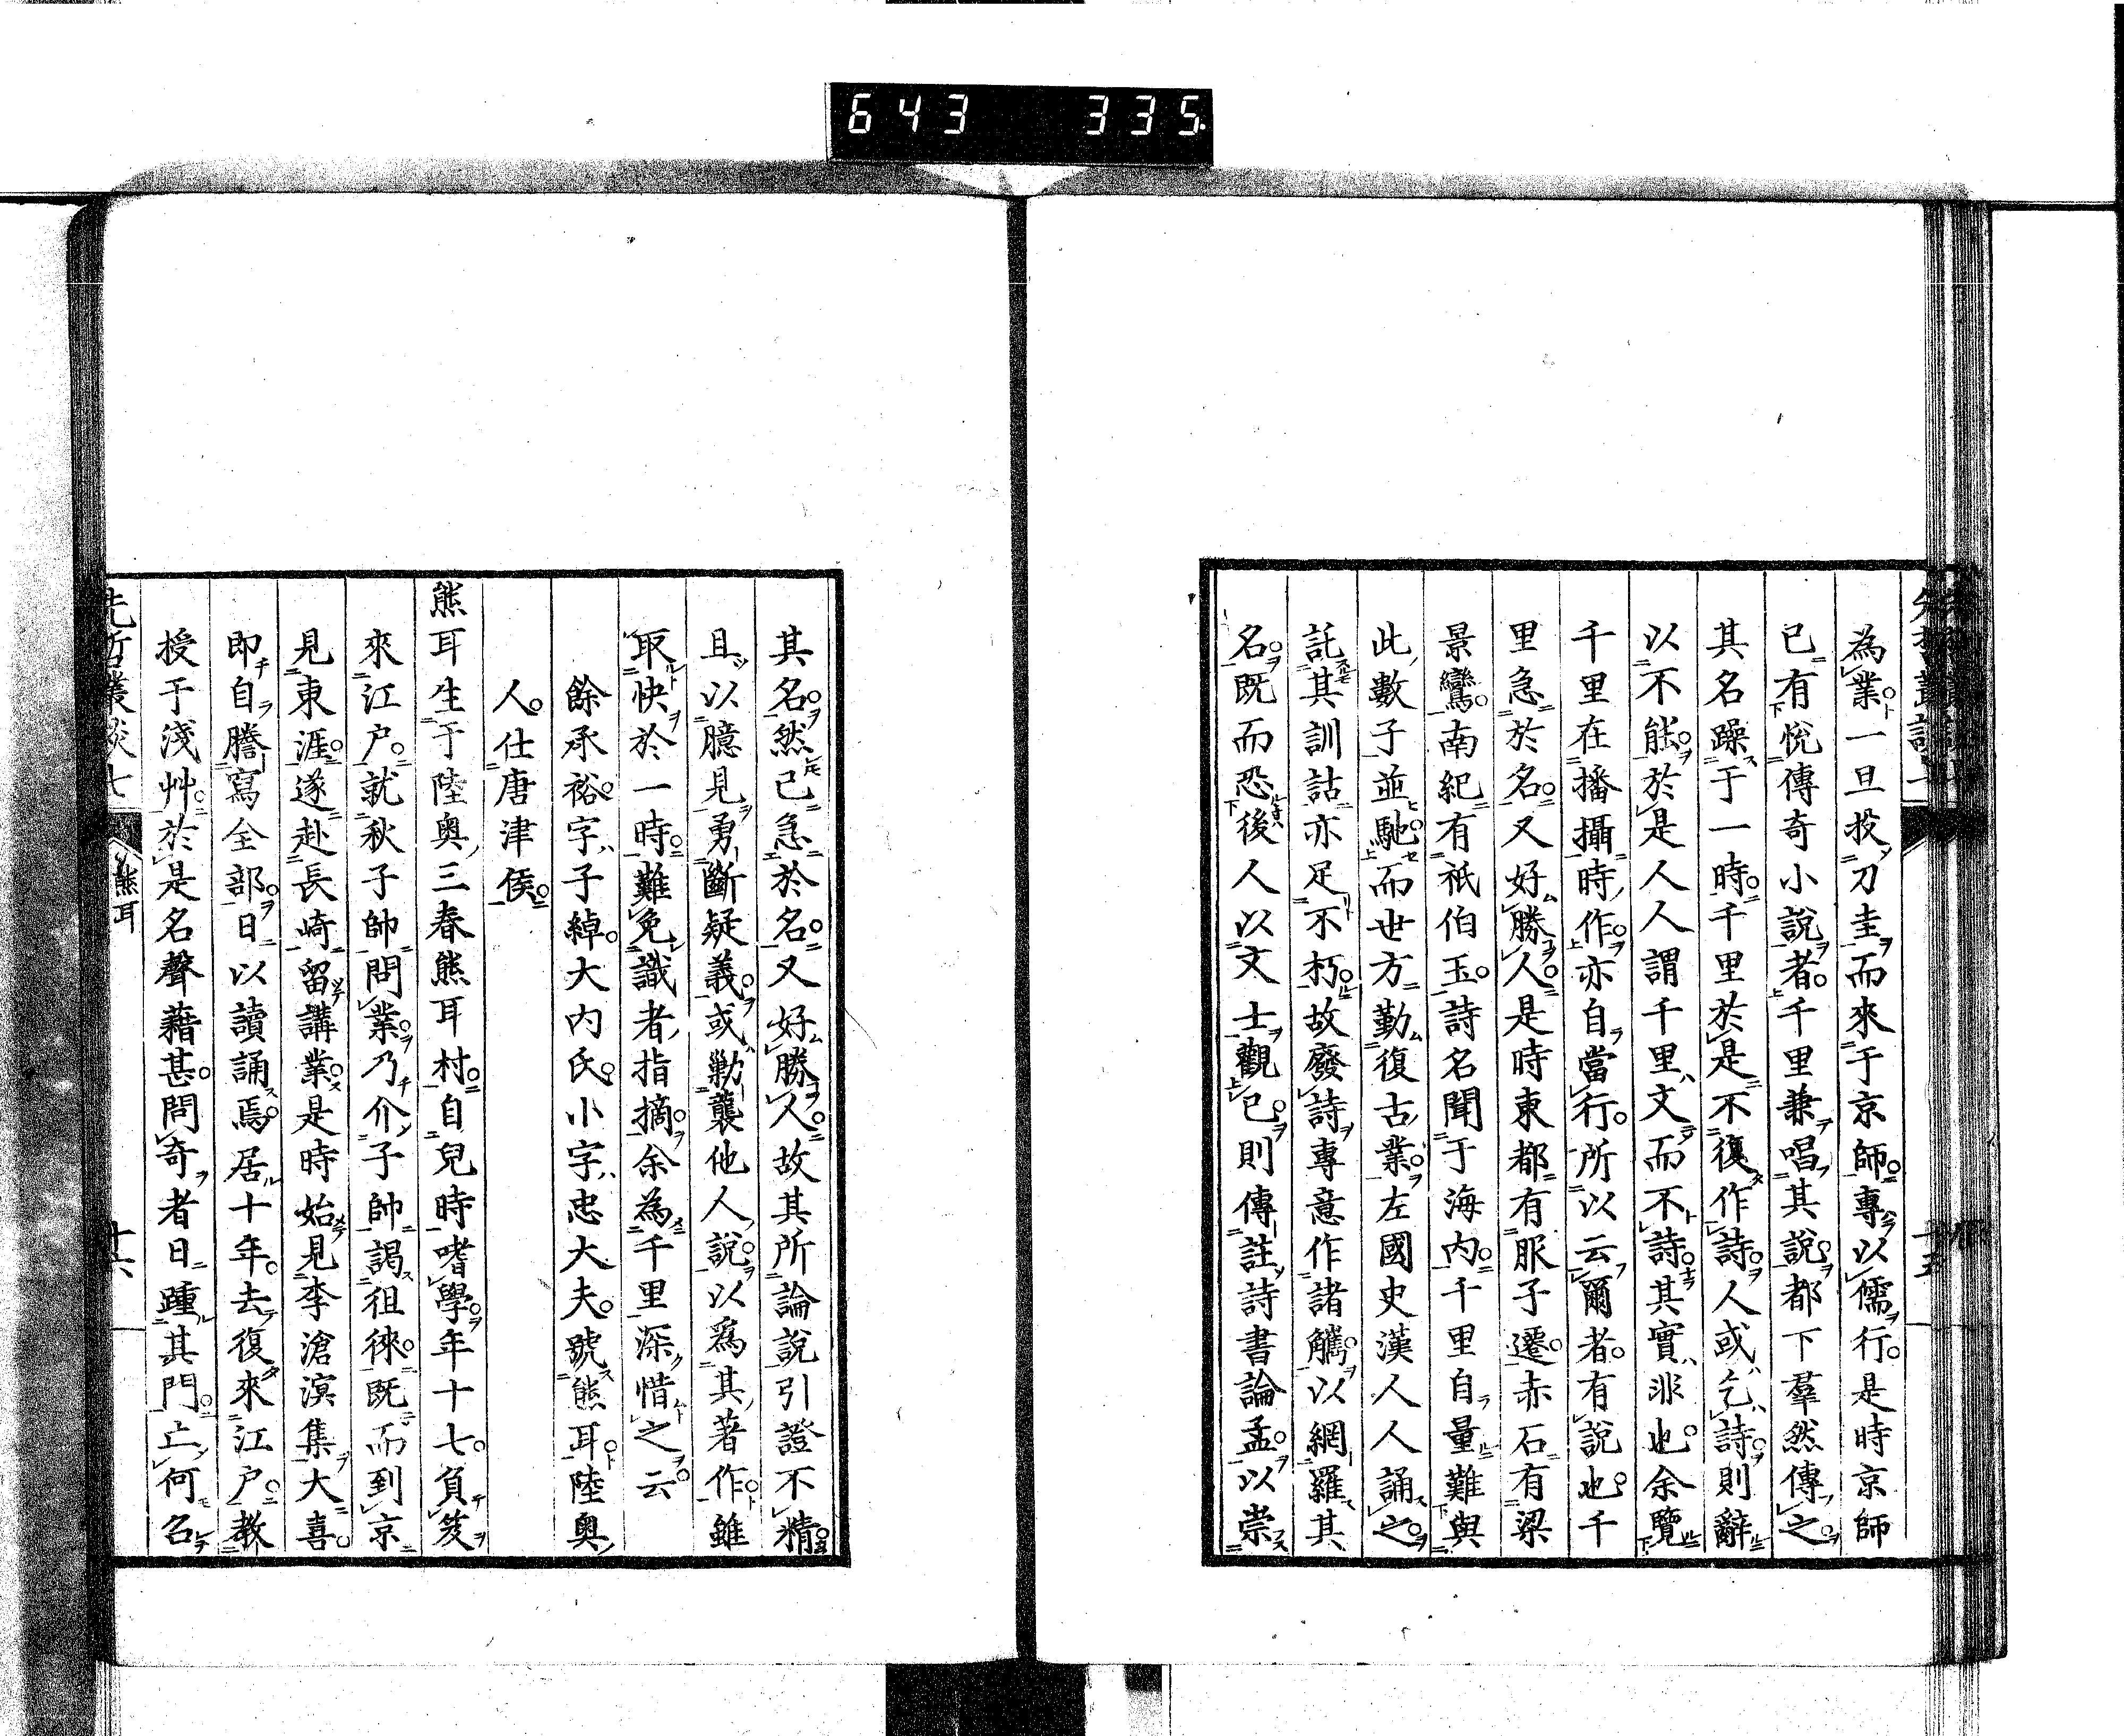 643 335
為業一旦投刀圭而來于京師專以儒行是時京師
已有悅傳奇小說者千里兼唱其說都下羣然傳之
其名躁于一時千里於是不復作詩人或乞詩則辭
以不能於是人人謂千里文而不詩其實非也余覽
千里在播攝時作亦自當行所以云爾者有說也千
里急於名又好勝人是時東都有服子遷赤石有梁
景鸞南紀有祇伯玉詩名聞于海內千里自量難與
此數子並馳而世方勤復古業左國史漢人人誦之
託其訓詁亦足不朽故廢詩專意作諸觹以網羅其
名既而恐後人以文士觀己則傳註詩書論孟以崇
其名然已急於名又好勝人故其所論說引證不精
且以臆見勇斷疑義或勦襲他人說以爲其著作雖
取快於一時難免識者指摘余為千里深惜之云
餘承裕字子綽大內氏小字忠大夫號熊耳陸奧
人仕唐津侯
熊耳生于陸奧三春熊耳村自兒時嗜學年十七負笈
來江戶就秋子帥問業乃介子帥謁徂徠既而到京
見東涯遂赴長崎留講業是時始見李滄溟集大喜
即自謄寫全部日以讀誦焉居十年去復來江戶教
授于淺艸於是名聲藉甚問奇者日踵其門止何名
先哲叢談七 熊耳 十六